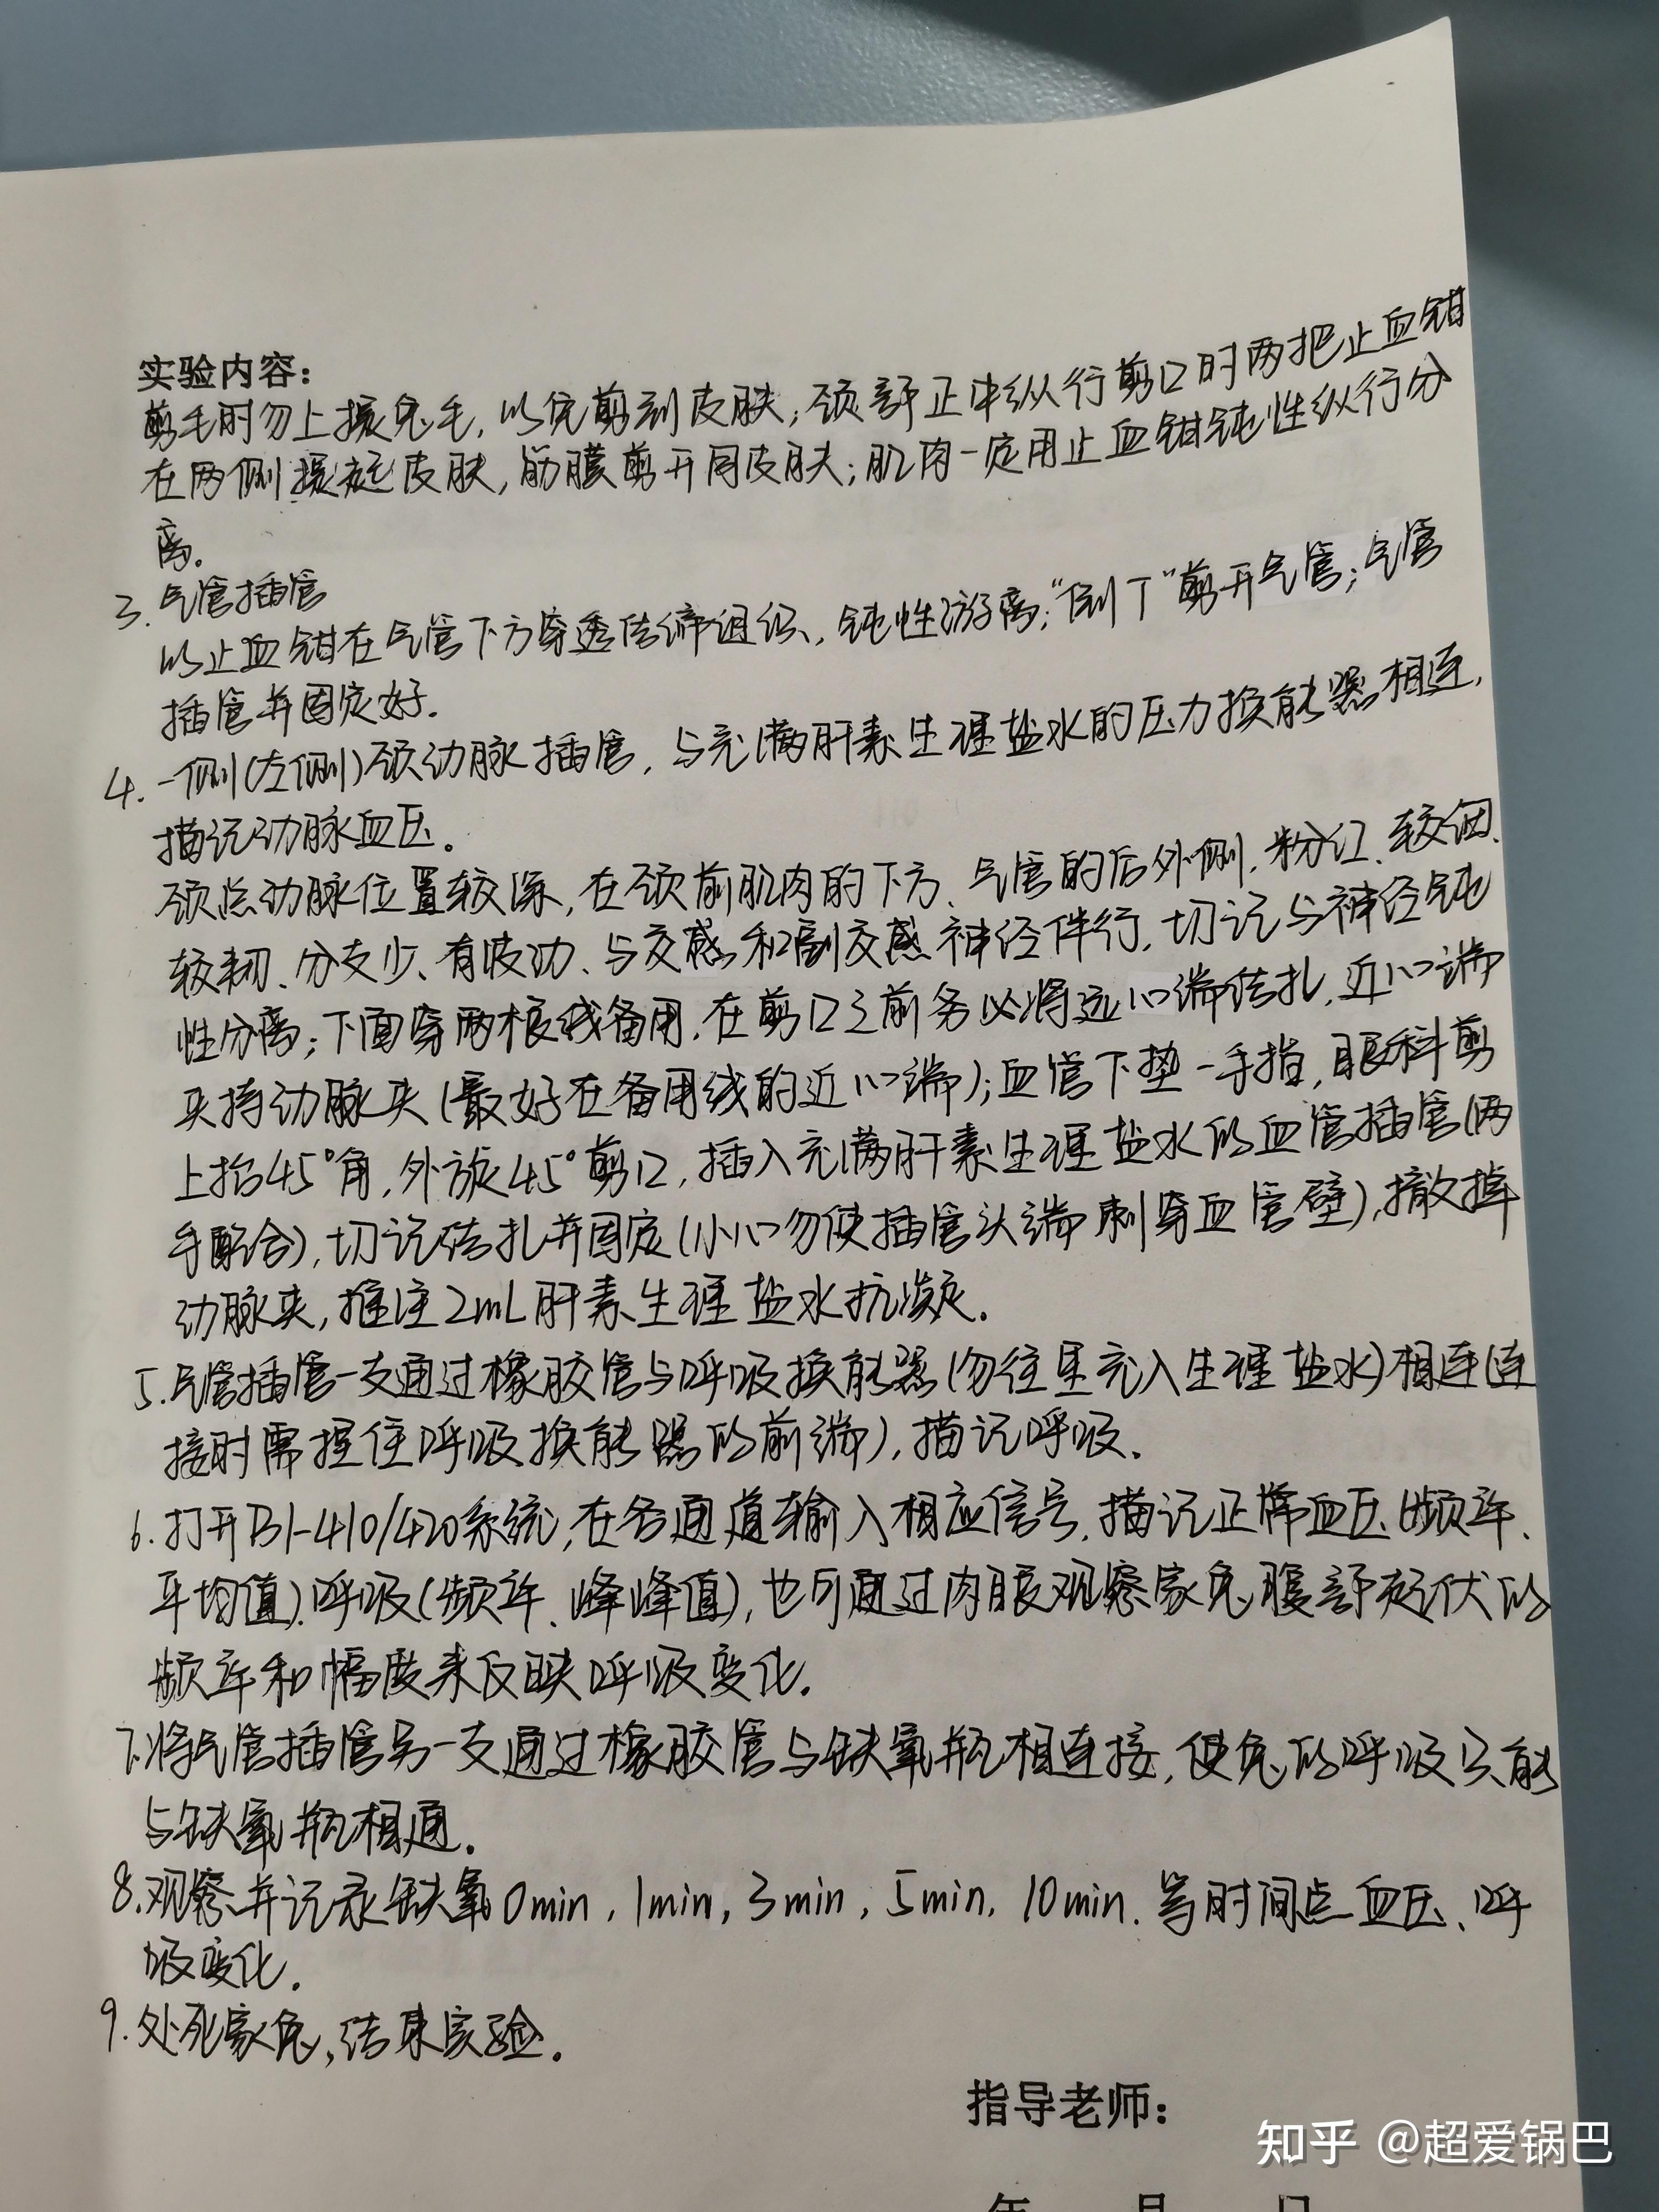 实验内容：
剪毛时勿上撮兔毛，以免剪到皮肤；颈部正中纵行剪口时两把止血钳
在两侧撮起皮肤，筋膜剪开同皮肤；肌肉一定用止血钳钝性纵行分
离。
3. 气管插管
以止血钳在气管下方穿透结缔组织，钝性游离；“倒T”剪开气管；气管
插管并固定好.
4. 一侧(左侧)颈动脉插管，与充满肝素生理盐水的压力换能器相连，
描记动脉血压。
颈总动脉位置较深，在颈前肌肉的下方、气管的后外侧.粉红、较细、
较韧、分支少、有波动、与交感和副交感神经伴行，切记与神经钝
性分离；下面穿两根线备用，在剪口之前务必将远心端结扎，近心端
夹持动脉夹(最好在备用线的近心端)；血管下垫一手指，眼科剪
上抬45°角，外旋45°剪口，插入充满肝素生理盐水的血管插管(两
手配合)，切记结扎并固定(小心勿使插管头端刺穿血管壁)，撤掉
动脉夹，推注2mL肝素生理盐水抗凝.
5. 气管插管一支通过橡胶管与呼吸换能器(勿往里充入生理盐水)相连(连
接时需握住呼吸换能器的前端)，描记呼吸.
6. 打开BI-410/420系统，在各通道输入相应信号，描记正常血压(频率、
平均值)、呼吸(频率、峰峰值)，也可通过肉眼观察家兔腹部起伏的
频率和幅度来反映呼吸变化.
7. 将气管插管另一支通过橡胶管与缺氧瓶相连接，使兔的呼吸只能
与缺氧瓶相通.
8. 观察并记录缺氧0min，1min，3min，5min，10min.等时间点血压、呼
吸变化.
9. 处死家兔，结束实验.
指导老师：
知乎 @超爱锅巴
年 月 日